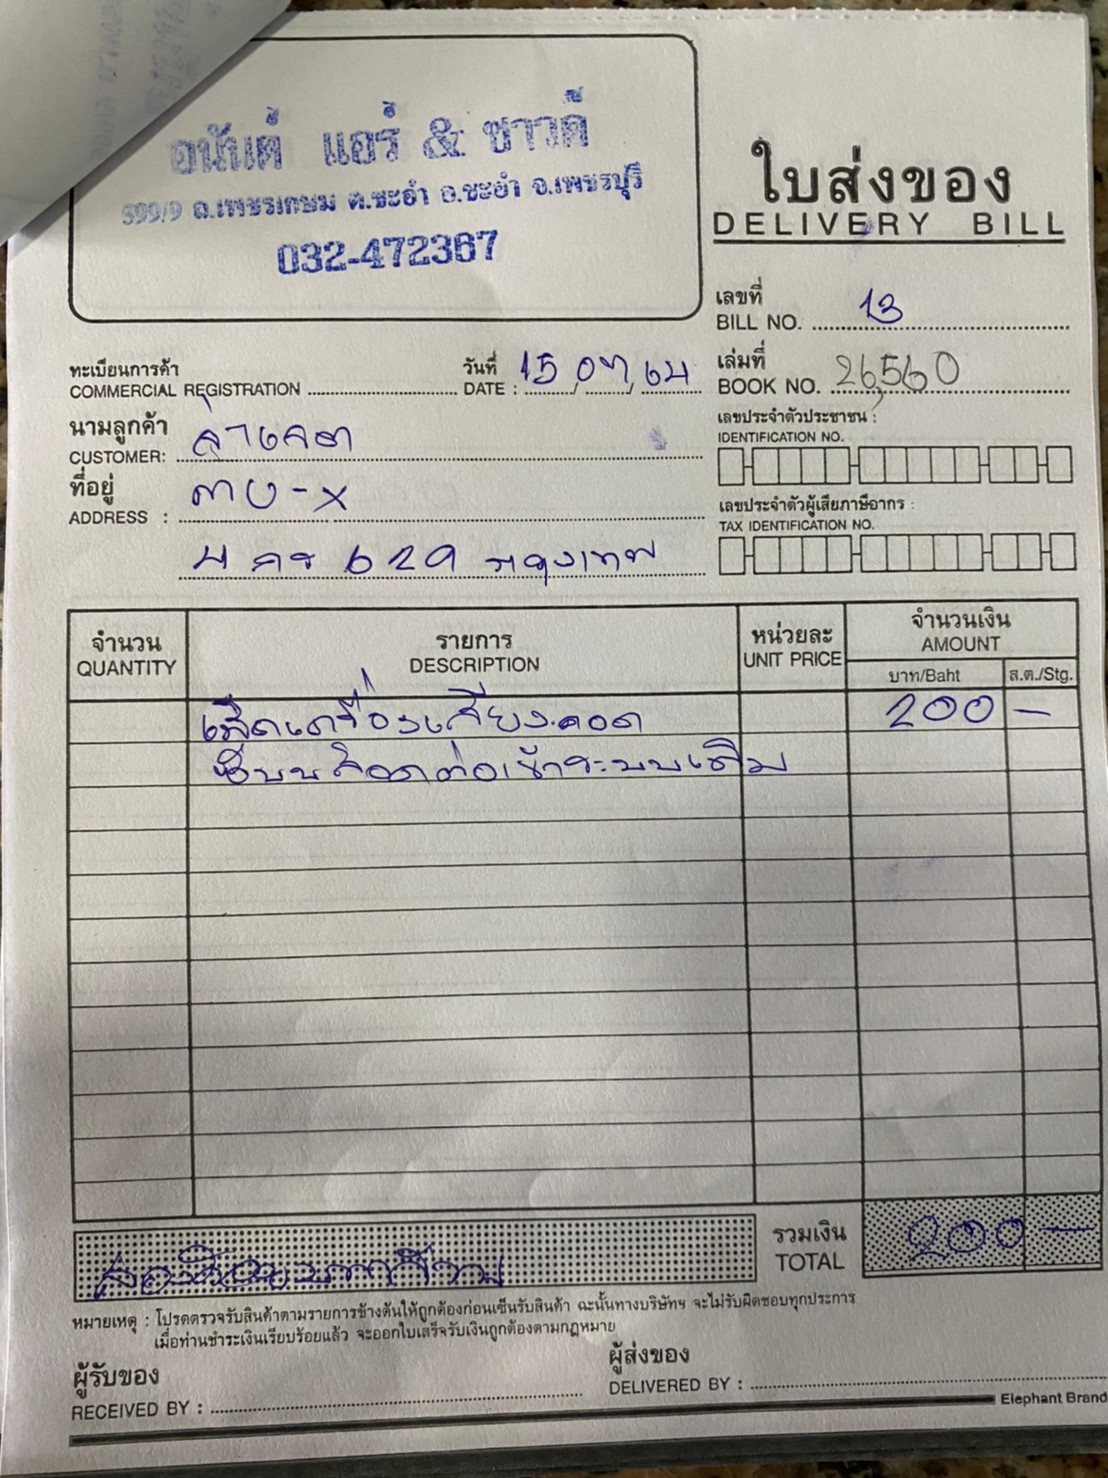 อนันต์ แอร์ & ซาวด์
599/9 ถ.เพชรเกษม ต.ชะอำ อ.ชะอำ จ.เพชรบุรี
032-472367
ใบส่งของ
DELIVERY BILL
เลขที่
BILL NO. 13
ทะเบียนการค้า
COMMERCIAL REGISTRATION
วันที่
DATE : 15 / 07 / 64
เล่มที่
BOOK NO. 26,560
นามลูกค้า
CUSTOMER:
เลขประจำตัวประชาชน :
IDENTIFICATION NO.
ที่อยู่
ADDRESS :
เลขประจำตัวผู้เสียภาษีอากร :
TAX IDENTIFICATION NO.
629 กรุงเทพ
จำนวน
QUANTITY
รายการ
DESCRIPTION
หน่วยละ
UNIT PRICE
จำนวนเงิน
AMOUNT
บาท/Baht
ส.ต./Stg.
เช็คเครื่องเสียง 200 -
ต่อเข้าระบบเดิม
สองร้อยบาทถ้วน
รวมเงิน
TOTAL
200 -
หมายเหตุ : โปรดตรวจรับสินค้าตามรายการข้างต้นให้ถูกต้องก่อนเซ็นรับสินค้า ฉะนั้นทางบริษัทฯ จะไม่รับผิดชอบทุกประการ
เมื่อท่านชำระเงินเรียบร้อยแล้ว จะออกใบเสร็จรับเงินถูกต้องตามกฎหมาย
ผู้รับของ
RECEIVED BY :
ผู้ส่งของ
DELIVERED BY :
Elephant Brand